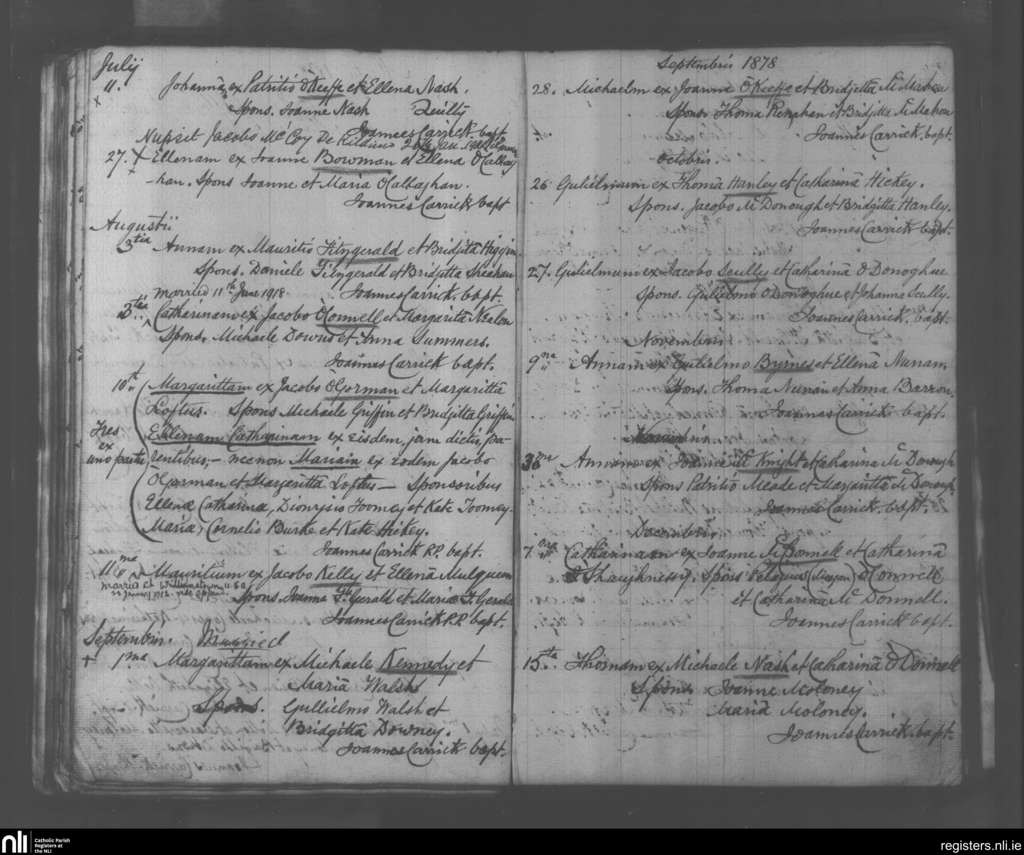 July
11. Johannā ex Patritio O'Keeffe et Ellena Nash.
x
Spons. Joanne Nash Quilty
Joannes Carrick. bapt.
Nupsit Jacobo McCoy De Kildimo
27. X Ellenam ex Joanne Bowman et Ellena O'Callag
-han. Spons Joanne et Maria O'Callaghan.
Joannes Carrick bapt
Augustii
3tia Annam ex Mauritio Fitzgerald et Bridgita Higgin
Spons. Daniele Fitzgerald et Bridgitta Sheehan
married 11th June 1918. Joannes Carrick. bapt.
3.tia Catharinam ex Jacobo O'Connell et Margarita Nealon
Spons. Michaele Downs et Anna Summers.
Joannes Carrick bapt.
10th Margarittam ex Jacobo O'Gorman et Margarittā
Loftus. Spons Michaele Griffin et Bridgitta Griffin
Tres Ellenam Catharinam ex eisdem, jam dictis, pa-
ex
uno partu rentibus,- necnon Mariam ex eodem Jacobo
O'Gorman et Margaritta Loftus — Sponsoribus
Ellena Catharina, Dionysio Toomey et Kate Toomey.
Maria, Cornelio Burke et Kate Hickey.
Joannes Carrick P.P. bapt.
11 ma Mauritium ex Jacobo Kelley et Ellenā Mulqueen
married at
Spons. Joanne Ft Gerald et Maria F. Gerald
Joannes Carrick P.P. bapt.
Septembris. Married
+ 1ma Margarittam ex Michaele Kennedy et
Mariā Walsh
Spons. Gullielmo Walsh et
Bridgitta Downey.
Joannes Carrick bapt.
Septembris 1878
28. Michaelm ex Joanne O'Keeffe et Bridgetta McMahon
Spons. Thoma Renehan et Bridgitta McMahon
Joannes Carrick. bapt.
Octobris
26 Gulielmum ex Thomā Hanley et Catharinā Hickey.
Spons. Jacobo McDonough et Bridgitta Hanley.
Joannes Carrick. bapt.
27. Gulielmum ex Jacobo Scully et Catharinā O'Donoghue
Spons. Gulielmo O'Donoghue et Johanna Scully.
Joannes Carrick. bapt.
Novembris
9na Annam ex Gulielmo Byrnes et Ellenā Nunam
Spons. Thoma Nunan et Anna Barron.
Joannes Carrick bapt.
Novembris
Annam ex Joanne Knight et Catharina McDonough
Spons Patritio Meade et Margaritta McDonough.
Joannes Carrick. bapt.
Decembris
7 ma Catharinam ex Joanne McDonnell et Catharinā
O'Shaughnessy. Spons O'Connell
et Catharinā McDonnell.
Joannes Carrick bapt.
15ta Thomam ex Michaele Nash et Catharinā O'Donnell
Spons Joanne Moloney
Mariā Moloney.
Joannes Carrick. bapt.
nli
Catholic Parish
Registers at
the NLI
registers.nli.ie